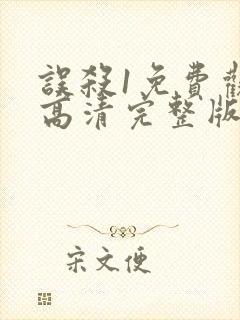 誤殺1免費觀
高清完整版
宋文便